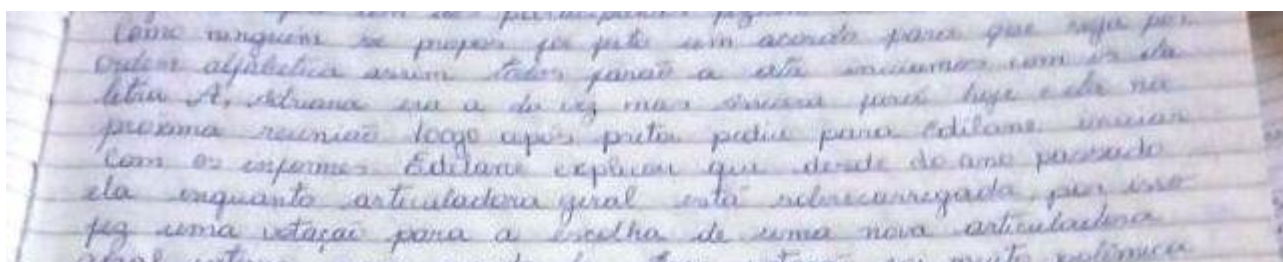 como ninguem se propos foi feito um acordo para que seja por
ordem alfabetica assim todos farão a ata iniciamos com os da
letra A, Adriana era a da vez mas fará hoje e ela na
proxima reunião loogo apos preta pediu para Edilane iniciar
com os informes Edilane explicou que desde do ano passado
ela enquanto articuladora geral está sobrecarregada por isso
fez uma votação para a escolha de uma nova articuladora
geral muito polêmica